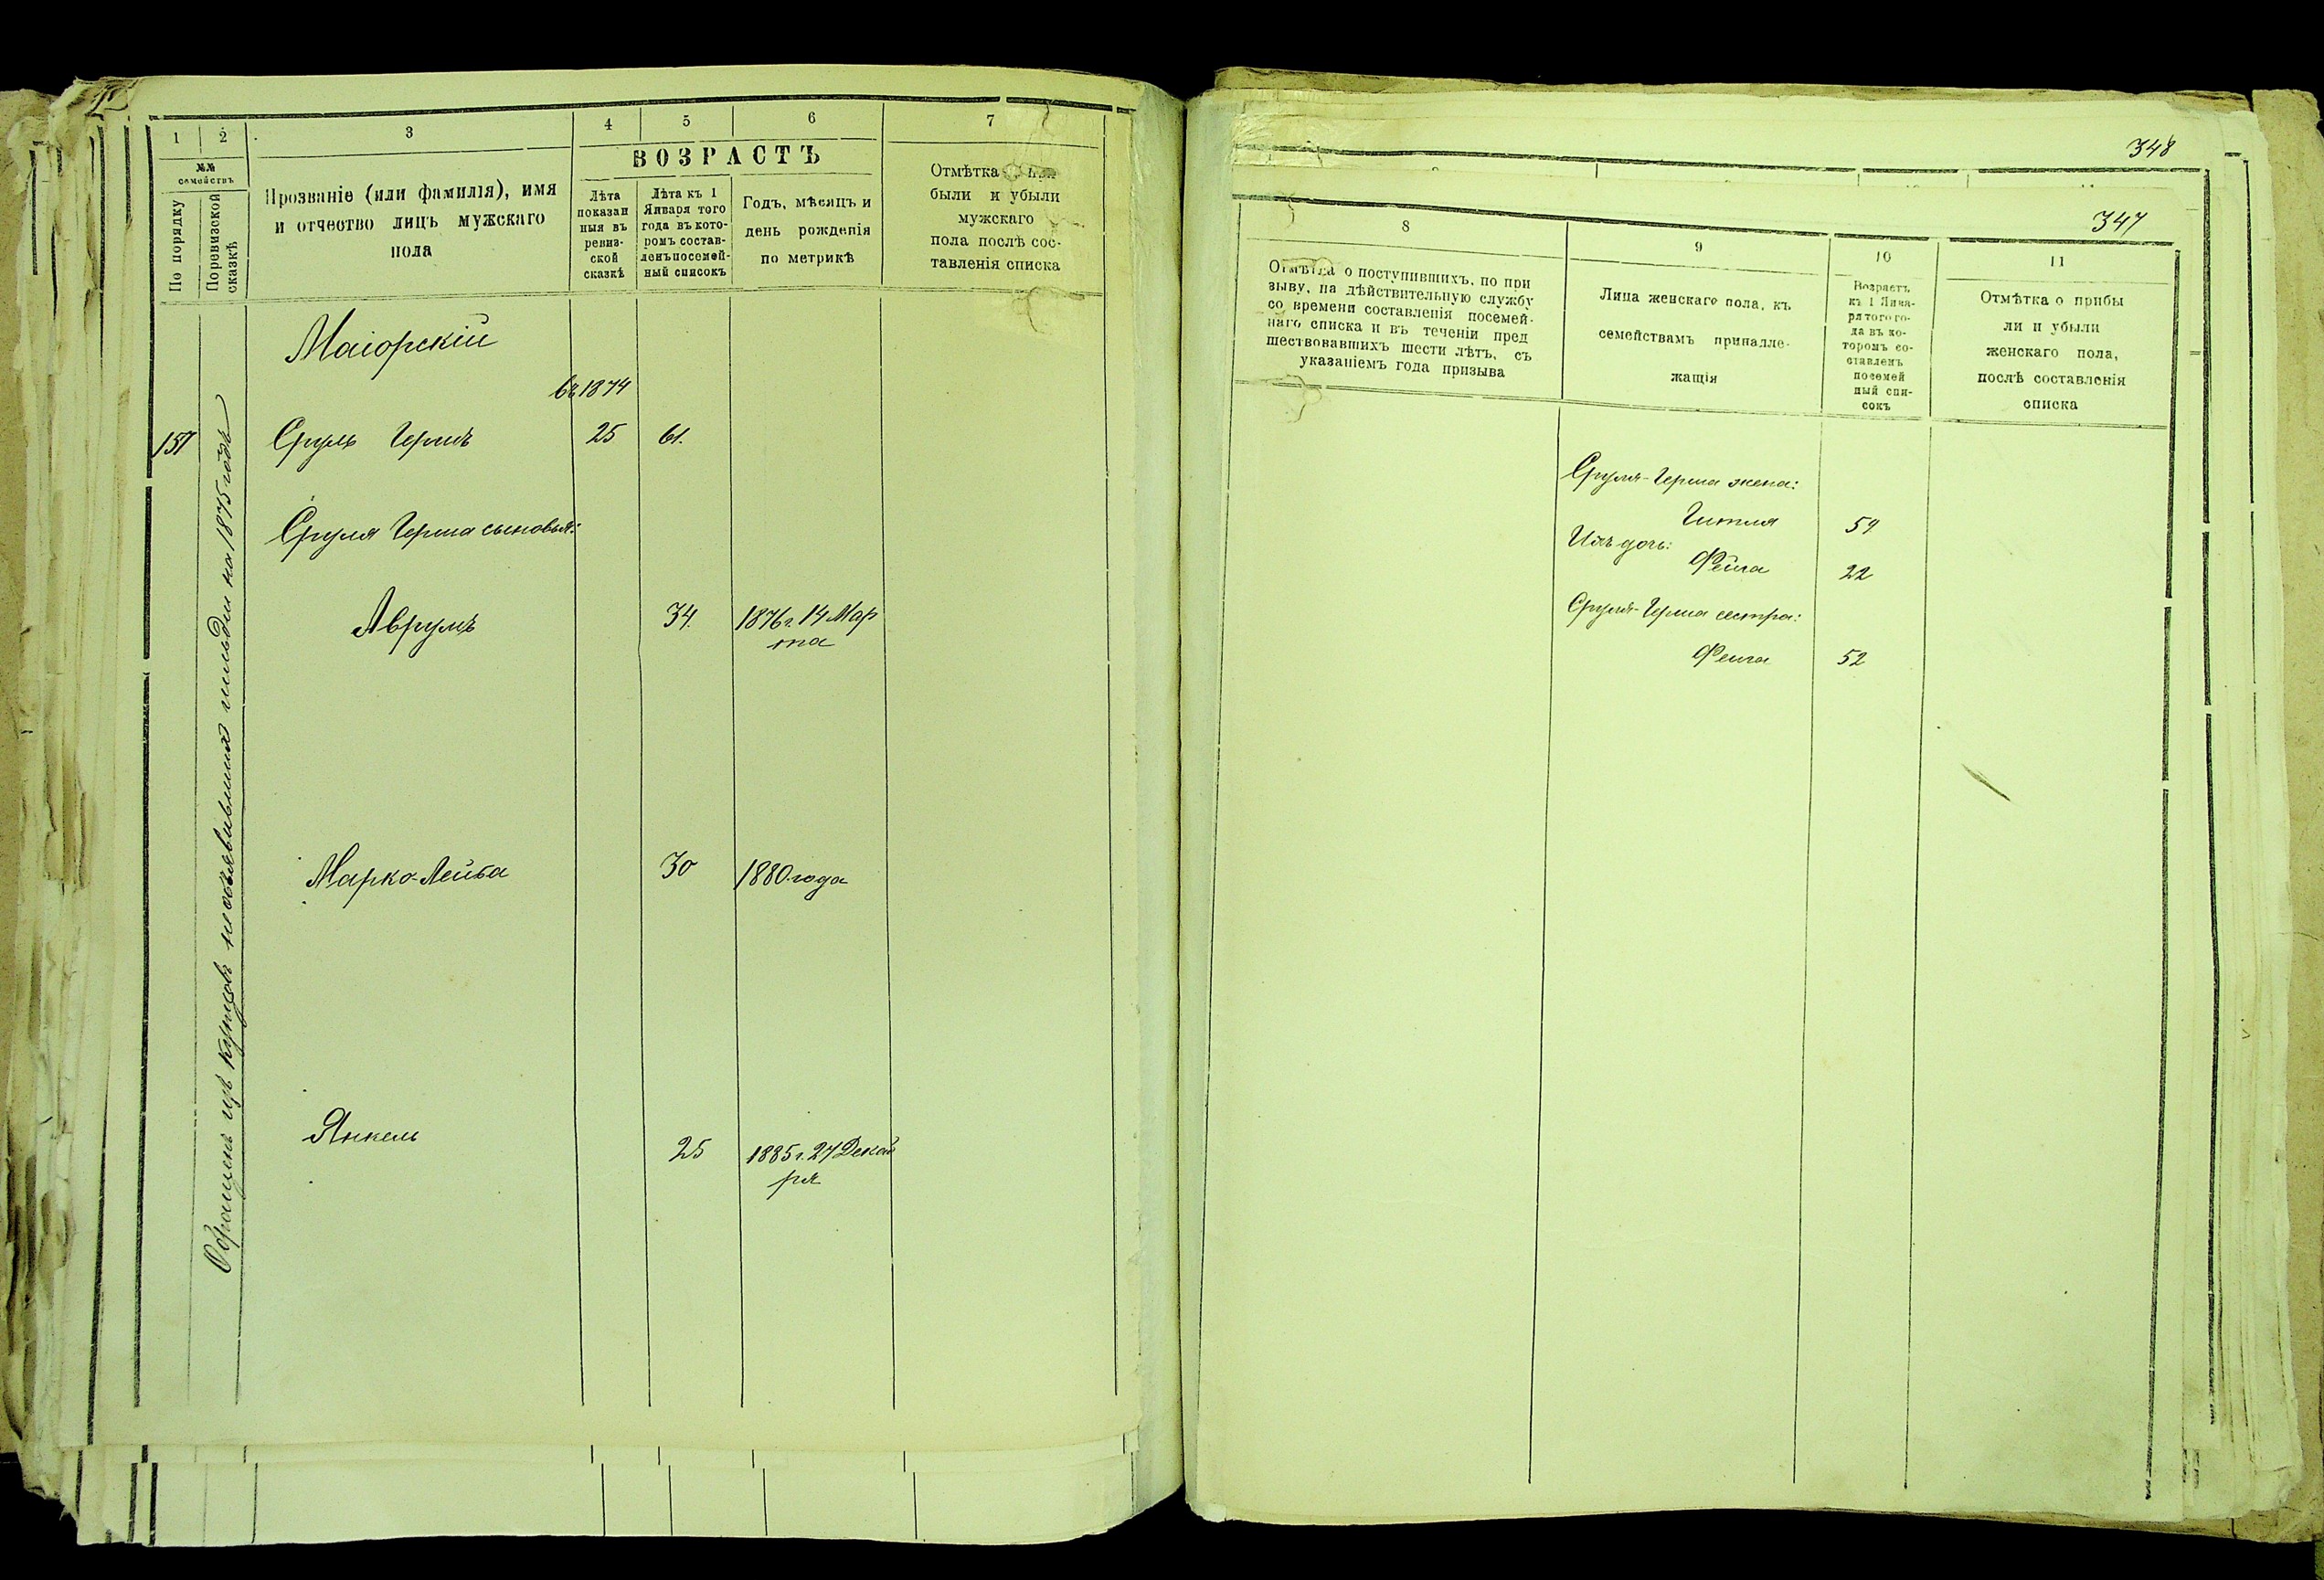 1 2 3 4 5 6 7
№№
семействъ
По порядку
По ревизской
сказкѣ
Прозваніе (или фамилія), имя
и отчество лицъ мужскаго
пола
ВОЗРАСТЪ
Лѣта
показан
ныя въ
ревиз-
ской
сказкѣ
Лѣта къ 1
Января того
года въ кото-
ромъ состав-
ленъ посемей-
ный списокъ
Годъ, мѣсяцъ и
день рожденія
по метрикѣ
Отмѣтка
были и убыли
мужскаго
пола послѣ сос-
тавленія списка
Маіорскій
въ 1874
157 Сруль Гершъ 25 61.
Сруля Герша сыновья:
Аврумъ 34. 1876 г. 14 Мар
та
Марко-Лейба 30 1880 года
Янкель 25 1885 г. 27 Декаб
ря
Обращенъ изъ купцовъ на 1875 годъ
348
347
8 9 10 11
Отмѣтка о поступившихъ, по при
зыву, на дѣйствительную службу
со времени составленія посемей-
наго списка и въ теченіи пред
шествовавшихъ шести лѣтъ, съ
указаніемъ года призыва
Лица женскаго пола, къ
семействамъ принадле-
жащія
Возрастъ
къ 1 Янва-
ря того го-
да въ ко-
торомъ со-
ставленъ
посемей
ный спи-
сокъ
Отмѣтка о прибы
ли и убыли
женскаго пола,
послѣ составленія
списка
Сруля-Герша жена:
Гитля 59
Ихъ дочь:
Фейга 22
Сруля-Герша сестра:
Фейга 52